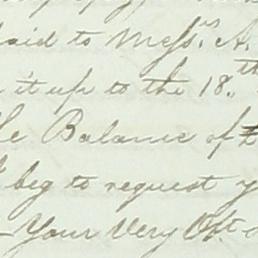 said to Messrs. A.
it up to the 18.th
the Balance of
beg to request y
Your Very Obt.